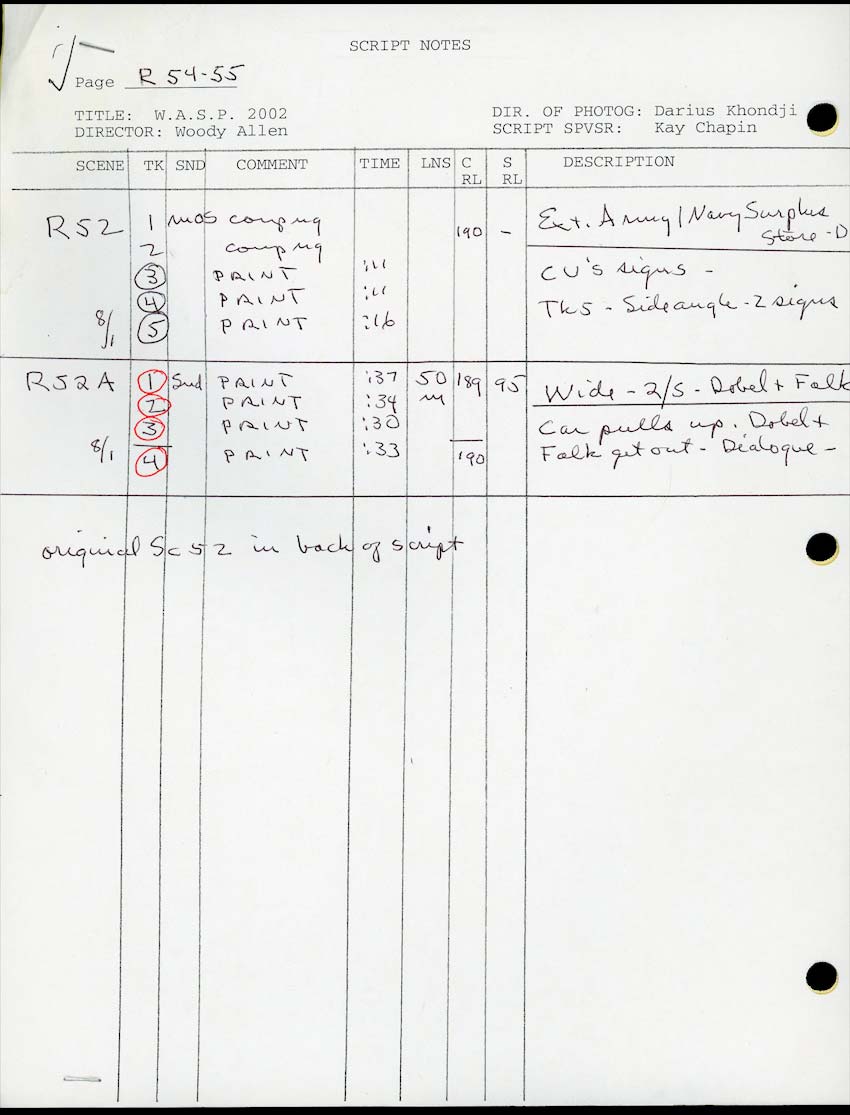 SCRIPT NOTES
Page R 54-55
TITLE: W.A.S.P. 2002 DIR. OF PHOTOG: Darius Khondji
DIRECTOR: Woody Allen SCRIPT SPVSR: Kay Chapin
SCENE TK SND COMMENT TIME LNS C RL S RL DESCRIPTION
R52 1 MOS comp ng 190 - Ext. Army/Navy Surplus
2 comp ng Store - D
3 PRINT :11 CU's signs -
4 PRINT :11 Tk5 - Side angle - 2 signs
8/1 5 PRINT :16
R52A 1 Snd PRINT :37 50 189 95 Wide - 2/S - Dobel + Falk
2 PRINT :34 m
3 PRINT :30 Car pulls up. Dobel +
8/1 4 PRINT :33 190 Falk get out - Dialogue -
original Sc 52 in back of script